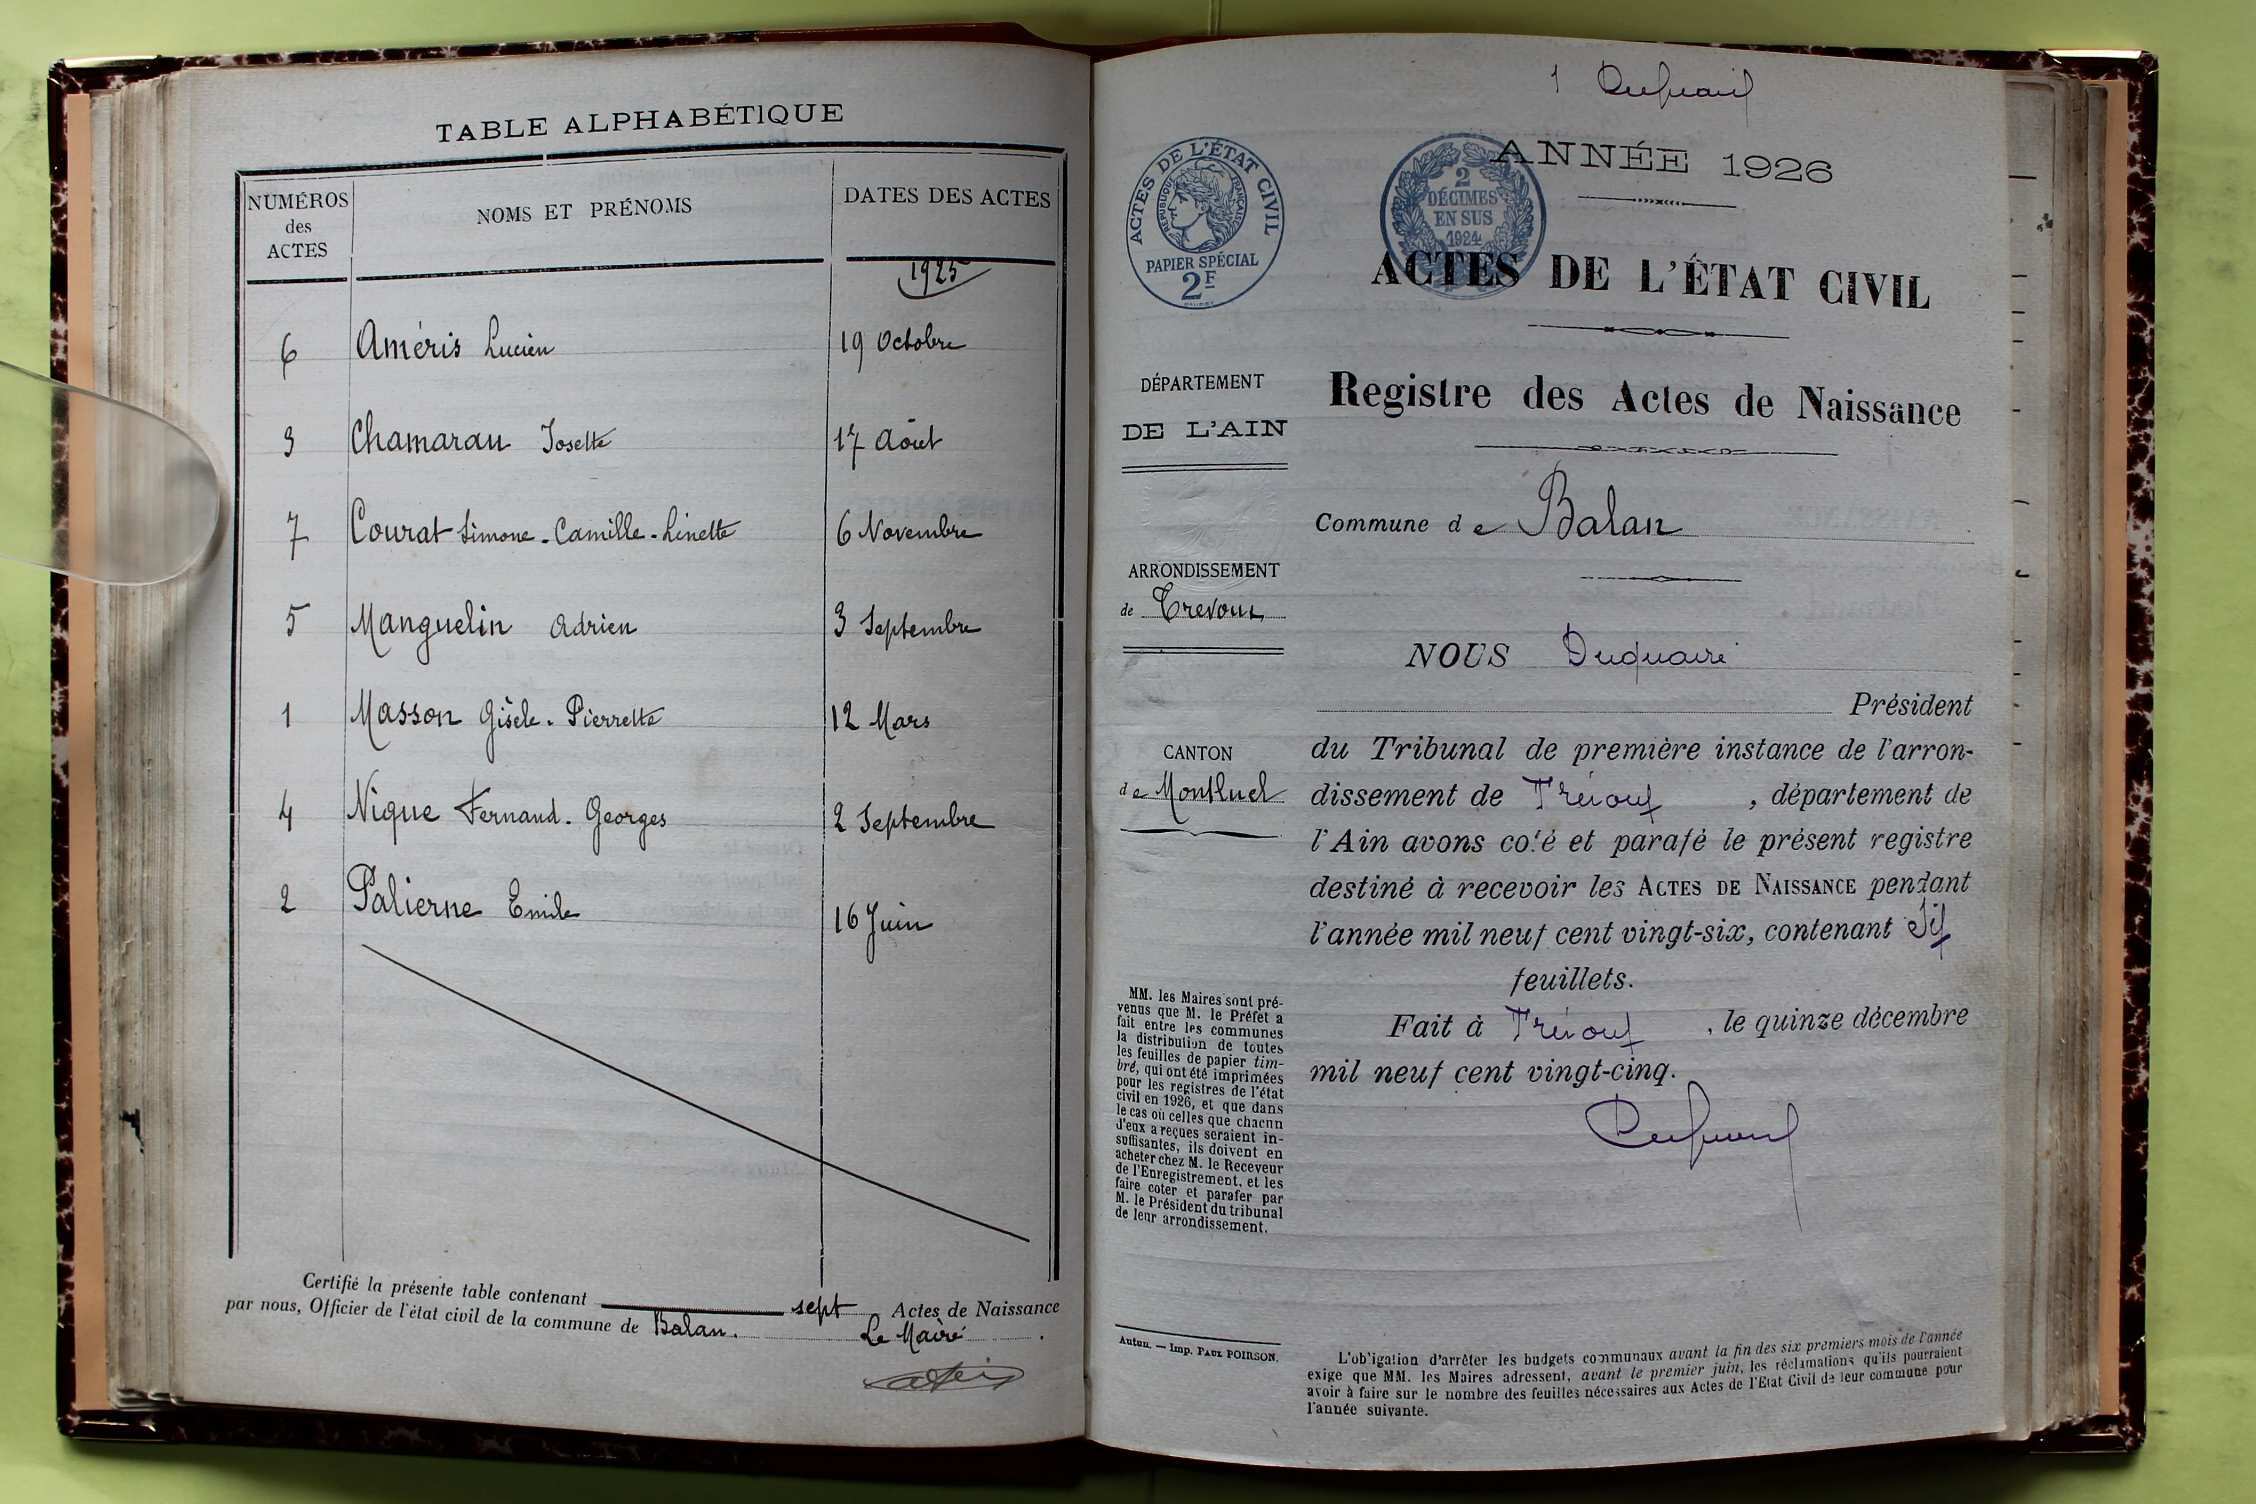 TABLE ALPHABÉTIQUE
NUMÉROS des ACTES
NOMS ET PRÉNOMS
DATES DES ACTES
1925
6 Améris Lucien 19 Octobre
3 Chamarau Josette 17 Août
7 Courat Simone-Camille-Linette 6 Novembre
5 Manguelin Adrien 3 Septembre
1 Masson Gisèle-Pierrette 12 Mars
4 Nique Fernand-Georges 2 Septembre
2 Palierne Emile 16 Juin
Certifié la présente table contenant sept Actes de Naissance
par nous, Officier de l'état civil de la commune de Balan.
Le Maire
1
ACTES DE L'ÉTAT CIVIL
RÉPUBLIQUE FRANÇAISE
PAPIER SPÉCIAL
2F
2
DÉCIMES
EN SUS
1924
ANNÉE 1926
ACTES DE L'ÉTAT CIVIL
DÉPARTEMENT
DE L'AIN
ARRONDISSEMENT
de Trevoux
CANTON
de Montluel
MM. les Maires sont pré-
venus que M. le Préfet a
fait entre les communes
la distribution de toutes
les feuilles de papier tim-
bré, qui ont été imprimées
pour les registres de l'état
civil en 1926, et que dans
le cas où celles que chacun
d'eux a reçues seraient in-
suffisantes, ils doivent en
acheter chez M. le Receveur
de l'Enregistrement, et les
faire coter et parafer par
M. le Président du tribunal
de leur arrondissement.
Autun. — Imp. PAUL POIRSON.
Registre des Actes de Naissance
Commune de Balan
NOUS Duquaire
Président
du Tribunal de première instance de l'arron-
dissement de Trévoux, département de
l'Ain avons coté et parafé le présent registre
destiné à recevoir les ACTES DE NAISSANCE pendant
l'année mil neuf cent vingt-six, contenant Six
feuillets.
Fait à Trévoux, le quinze décembre
mil neuf cent vingt-cinq.
L'obligation d'arrêter les budgets communaux avant la fin des six premiers mois de l'année
exige que MM. les Maires adressent, avant le premier juin, les réclamations qu'ils pourraient
avoir à faire sur le nombre des feuilles nécessaires aux Actes de l'État Civil de leur commune pour
l'année suivante.